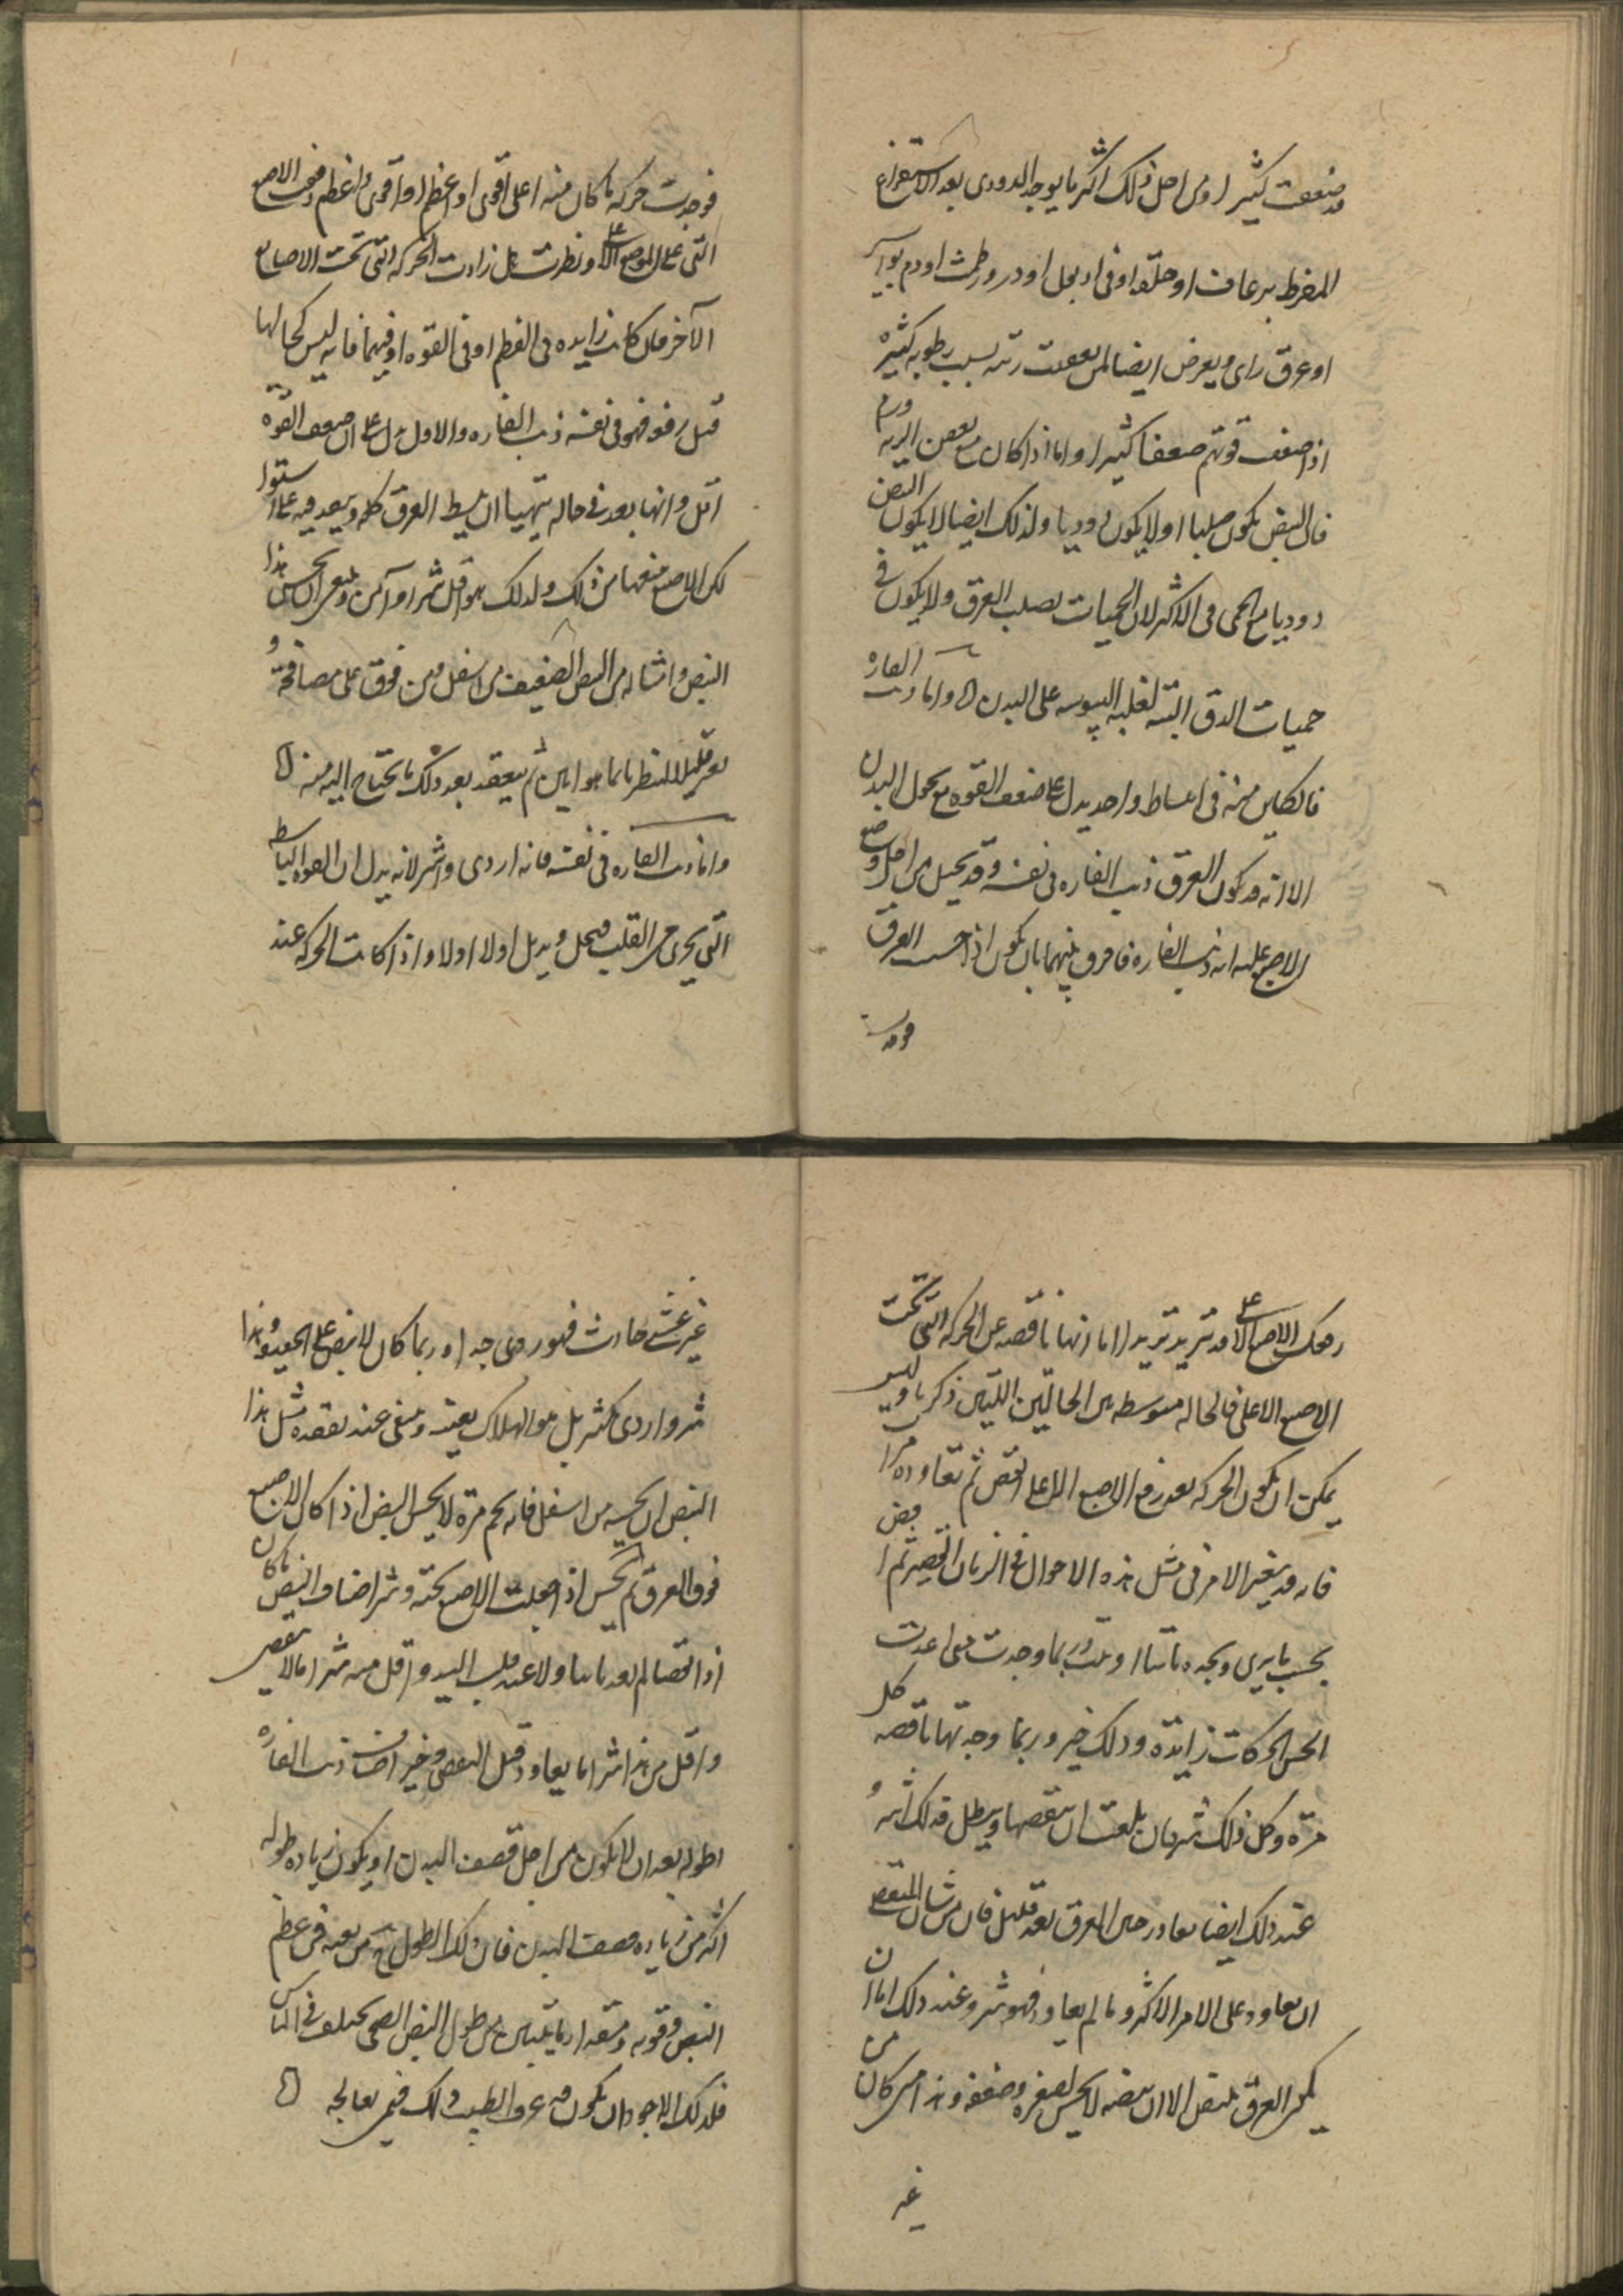 قد ضعفت كثيرا ومن اجل ذلك اكثر ما يوجد الدودى بعد الاستفراغ
المفرط برعاف او خلفه او قى او بول او درور طمث او دم بواسير
او عرق راى ويعرض ايضا لمن بعفت رئته بسبب رطوبه كثيرة
اذا ضعف قوتهم ضعفا كثيرا واما اذا كان مع بعض الريه ورم
فان النبض يكون صلبا اولا يكون دوديا ولذلك ايضا لا يكون النبض
دوديا مع الحمى فى الاكثر لان الحميات تصلب العرق ولا يكون فى
حميات الدق البته لغلبه اليبوسه على البدن واما ذنب الفاره
فالكاين منه فى انبساط واحد يدل على ضعف القوه مع نحول البدن
الا انه قد يكون العرق ذنب الفاره فى نفسه وقد يخيل من اجل وضع
الاصبع عليه انه ذنب الفاره فافرق بينهما بان يكون اذا جست العرق
فوجدت
فوجدت حركه ما كان منه اعلى اقوى او اعظم او اقوى واعظم رفعت الاصبع
التى على الموضع الاعلى ونظرت هل زادت الحركه التى تحت الاصابع
الآخر فان كانت زايده فى العظم او فى القوه او فيهما فانه ليس بحالها
قبل رفعه فهو فى نفسه ذنب الفاره والاول يدل على ان ضعف القوة
اقل وانها بعد فى حاله يتهيا ان يبسط العرق كله ويصعد فيه على استوا
لكن الاصبع منعها من ذلك ولذلك هو اقل شرا وآمن وينبغى ان يحس هذا
النبض وامثاله من النبض الضعيف من اسفل ومن فوق على مصافحة و
بعز قليلا لينظر ايما هو ابين ثم يتعقد بعد ذلك ما يحتاج اليه منه
واما ذنب الفاره فى نفسه فانه اردى واشر لانه يدل ان القوه الباسطه
التى تجرى من القلب تنحل وتذبل اولا اولا واذا كانت الحركه عند
رفعك الاصبع الاعلى قد تزيد تزيدا اما انها ناقصه عن الحركه التى تحت
الاصبع الاعلى فالحاله متوسطه بين الحالتين اللتين ذكرنا وليس
يمكن ان يكون الحركه بعد رفع الاصبع الاعلى انقص ثم تعاوده مرا
فانه قد يتغير الامر فى مثل هذه الاحوال فى الزمان القصير ثم اقض
بحسب ما يرى ويجده ثابتا او يلبث وربما وجدت متى اعدت
الحس الحركات زايدة وذلك خير وربما وجدتها ناقصه كل
مرة وكل ذلك شر فان بلغت ان ينقصها ويبطل فذلك اشر و
عند ذلك ايضا تعاود حس العرق بعد قليل فان من شان المنقضى
ان يعاود على الامر الاكثر وما لم يعاود فهو شر وعند ذلك اما ان
يكن العرق ينبض الا ان نبضه لا يحس لصغره وضعفه وهذا من كان من
غير
غير غشى حادث فهو ردى جدا وربما كان لا ينبض على الحقيقه وهذا
شر واردى كثير بل هو الهلاك بعينه وينبغى عند تفقده مثل هذا
النبض ان يحسه من اسفل فانه كم مرة لا يحس النبض اذا كان الاصبع
فوق العرق ثم يحس اذا جعلت الاصبع تحته وشر اصناف النبض ما كان
اذا انقضى لم يعد ثانيا ولا عند قلب اليد واقل منه شرا ما لا ينقضى
واقل من هذا شرا ما يعاود قبل النقصى وخير اصناف ذنب الفاره
اطوله بعد ان لا يكون من اجل قضف البدن او يكون زياده طوله
اكثر من زياده قضف البدن فان ذلك الطول من بعيد فى عظم
النبض وقوته ومقدار ما يتبين من طول النبض الصحى يختلف فى الناس
فلذلك الاجود ان يكون قد عرف الطبيب ذلك فيمن يعالجه